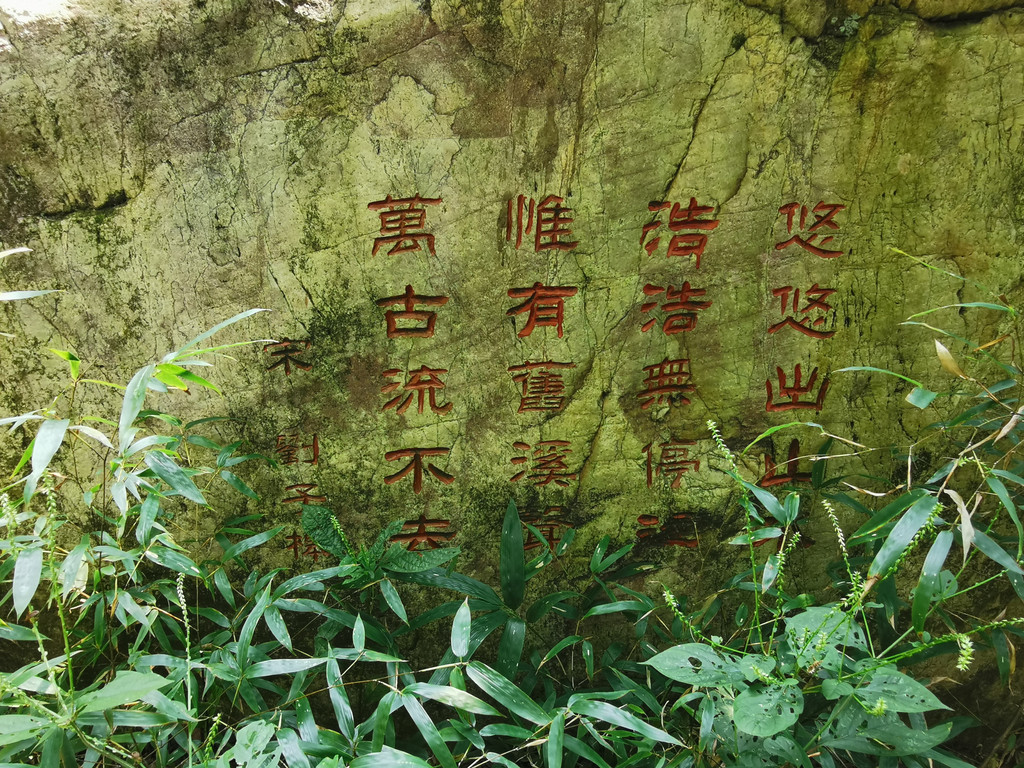 悠悠出山
浩浩無停
惟有舊溪聲
萬古流不去
宋 劉子